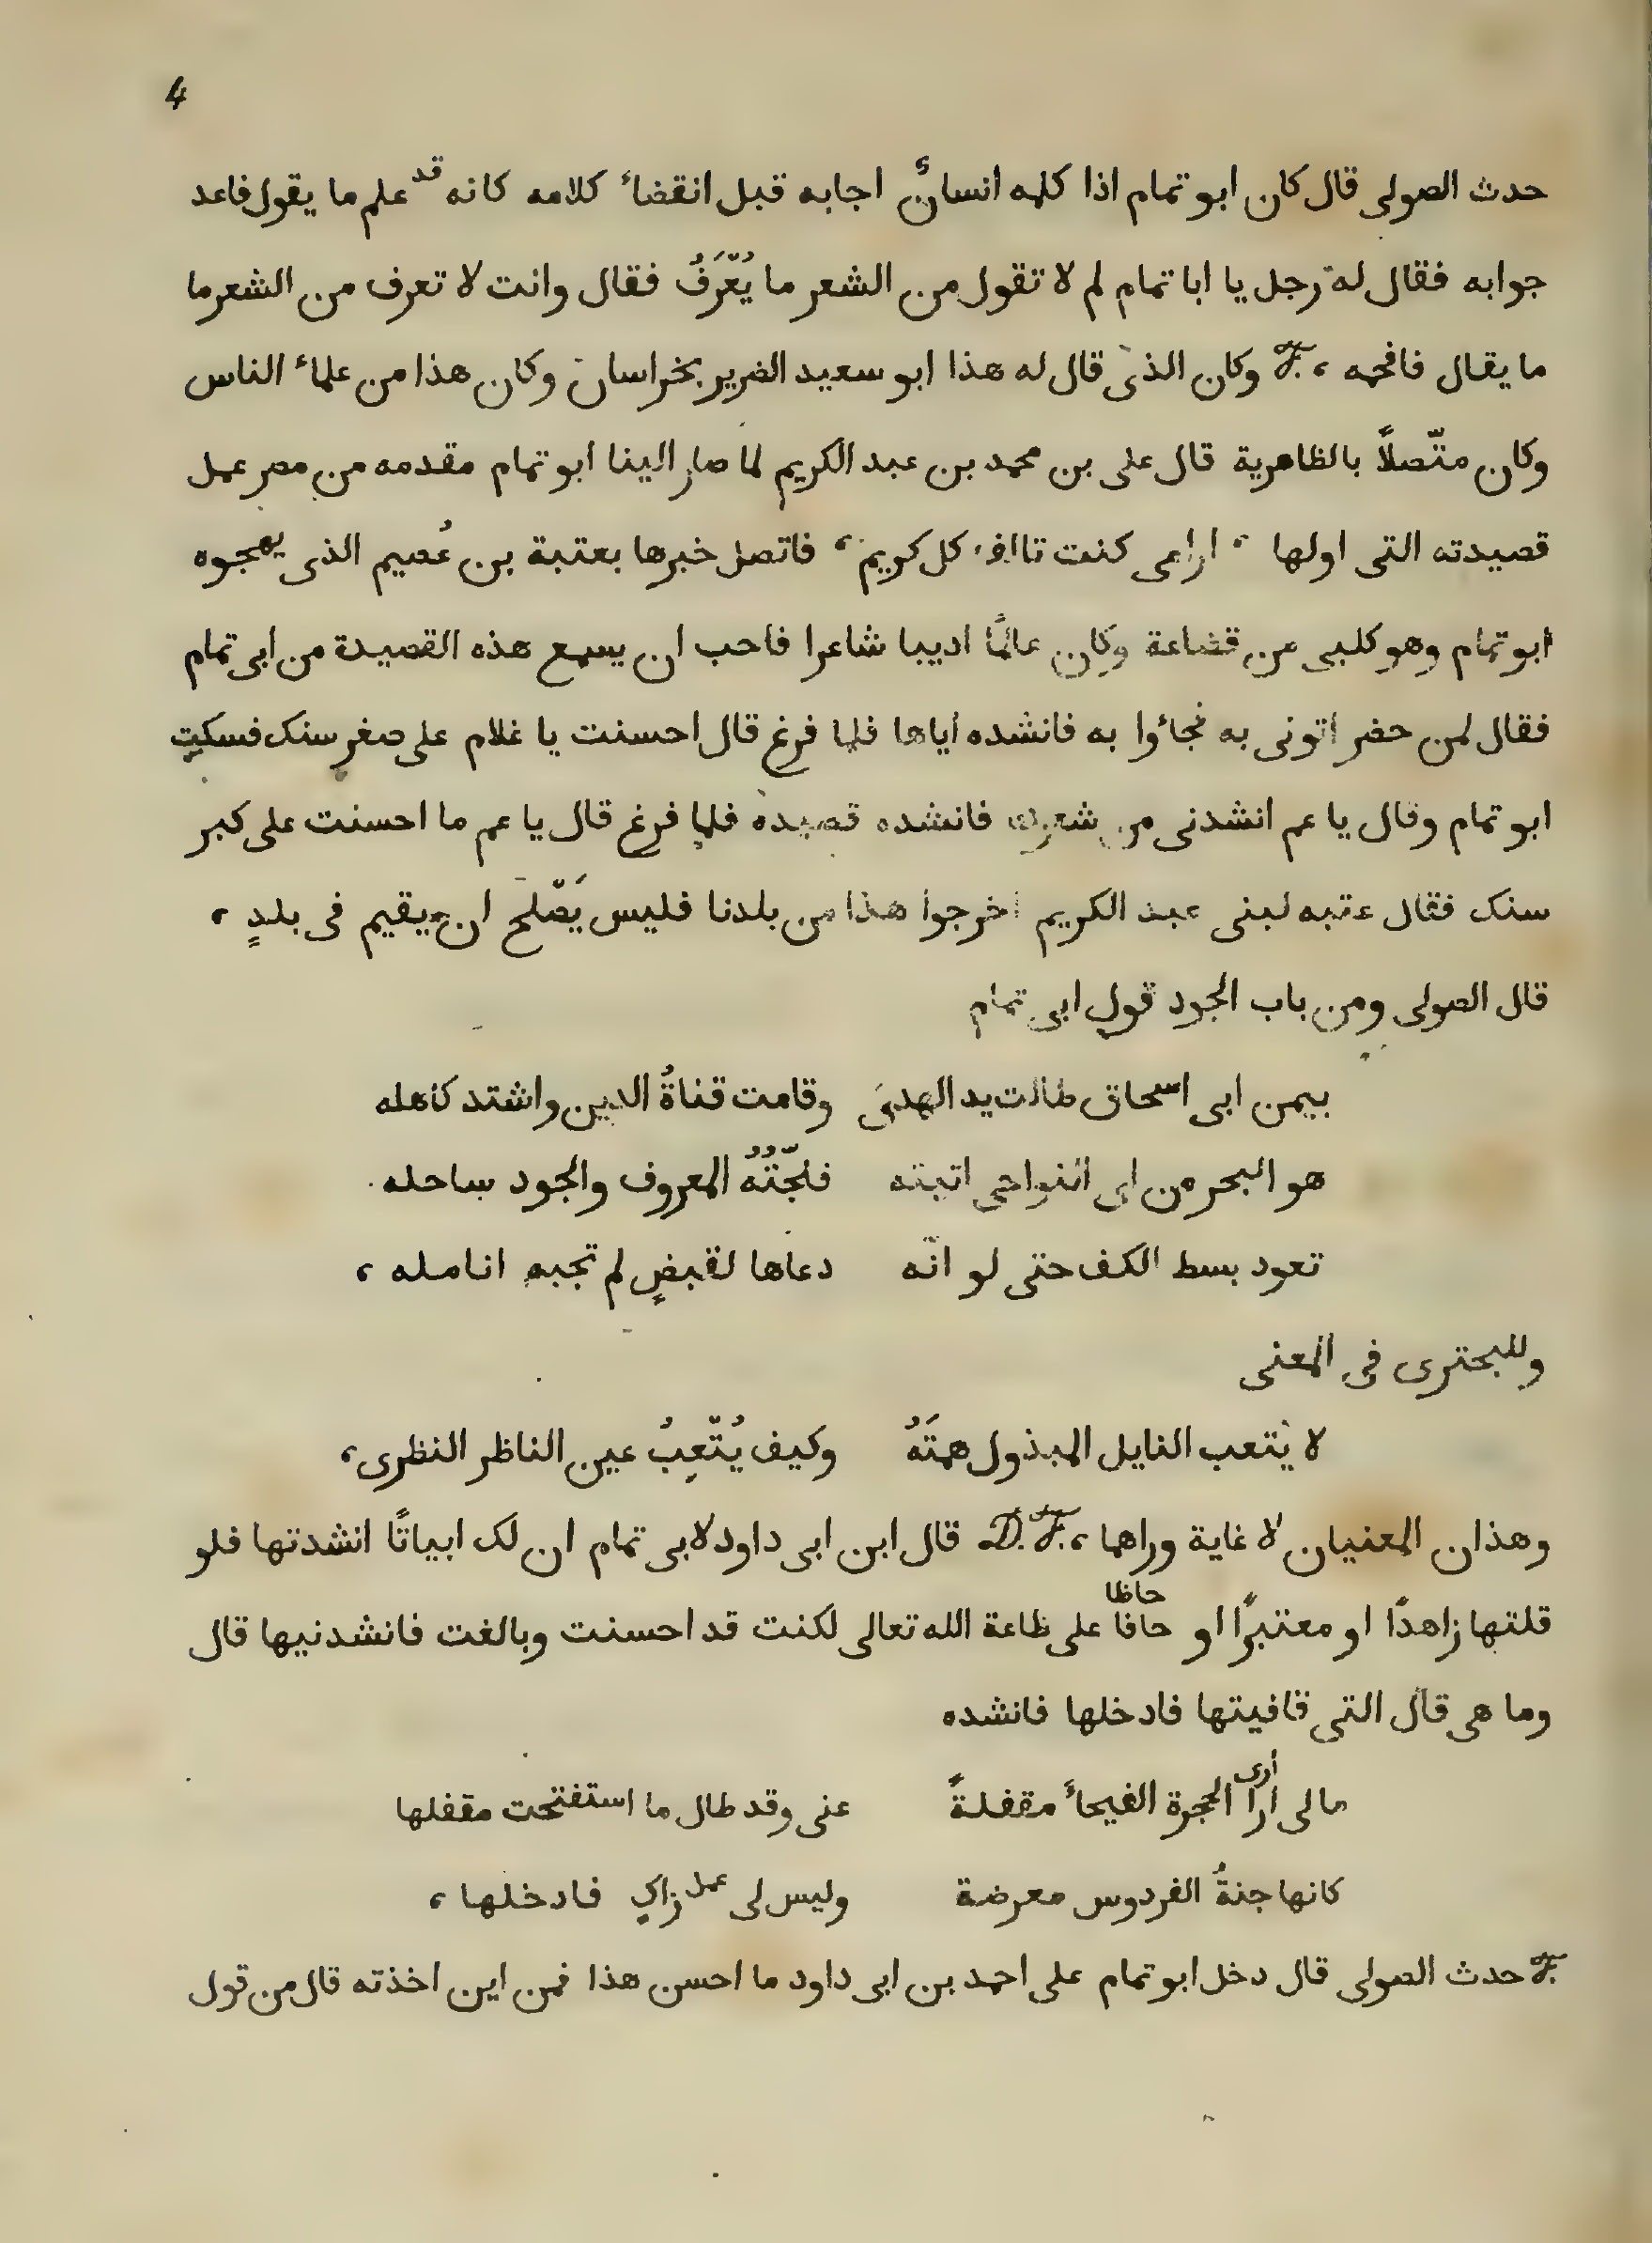 4
حدث الصولى قال كان ابو تمام اذا كلمه انسانٌ اجابه قبل انقضاء كلامه كانه قد علم ما يقول فاعد
جوابه فقال له رجل يا ابا تمام لم لا تقول من الشعر ما يُعْرَفُ فقال وانت لا تعرف من الشعر ما
ما يقال فافحمه ، F. وكان الذى قال له هذا ابو سعيد الضرير بخراسان وكان هذا من علماء الناس
وكان متّصلاً بالظاهرية قال على بن محمد بن عبد الكريم لما صار الينا ابو تمام مقدمه من مصر عمل
قصيدته التى اولها ، ارامى كنت تاالف كل كريم ، فاتصل خبرها بعتبة بن عُصيم الذى يهجوه
ابو تمام وهو كلبى من قضاعة وكان عالمًا اديبا شاعرا فاحب ان يسمع هذه القصيدة من ابى تمام
فقال لمن حضر اتونى به فجاؤا به فانشده اياها فلما فرغ قال احسنت يا غلام على صغر سنك فسكت
ابو تمام وقال يا عم انشدنى من شعرك فانشده قصيدة فلما فرغ قال يا عم ما احسنت على كبر
سنك فقال عتبه لبنى عبد الكريم اخرجوا هذا من بلدنا فليس يَصْلح ان يقيم فى بلدٍ ،
قال الصولى ومن باب الجود قول ابى تمام
بيمن ابى اسحاق طالت يد الهدى وقامت قناةُ الدين واشتد كاهله
هو البحر من اى النواحى اتيته فلجّتُهُ المعروف والجود ساحله
تعود بسط الكف حتى لو انّه دعاها لقبضٍ لم تجبه انامله ،
وللبحترى فى المعنى
لا يتعب النايل المبذول همتَهُ وكيف يُتْعِبُ عين الناظر النظرى ،
وهذان المعنيان لا غاية وراهما ، D. F. قال ابن ابى داود لابى تمام ان لك ابياتًا انشدتها فلو
قلتها زاهدًا او معتبرًا او حافا حاظا على طاعة الله تعالى لكنت قد احسنت وبالغت فانشدنيها قال
وما هى قال التى قافيتها فادخلها فانشده
مالى ارا أرى الحجرة الفيحاء مقفلةً عنى وقد طال ما استفتحت مقفلها
كانها جنةُ الفردوس معرضة وليس لى عمل زاكٍ فادخلها ،
F. حدث الصولى قال دخل ابو تمام على احمد بن ابى داود ما احسن هذا فمن اين اخذته قال من قول